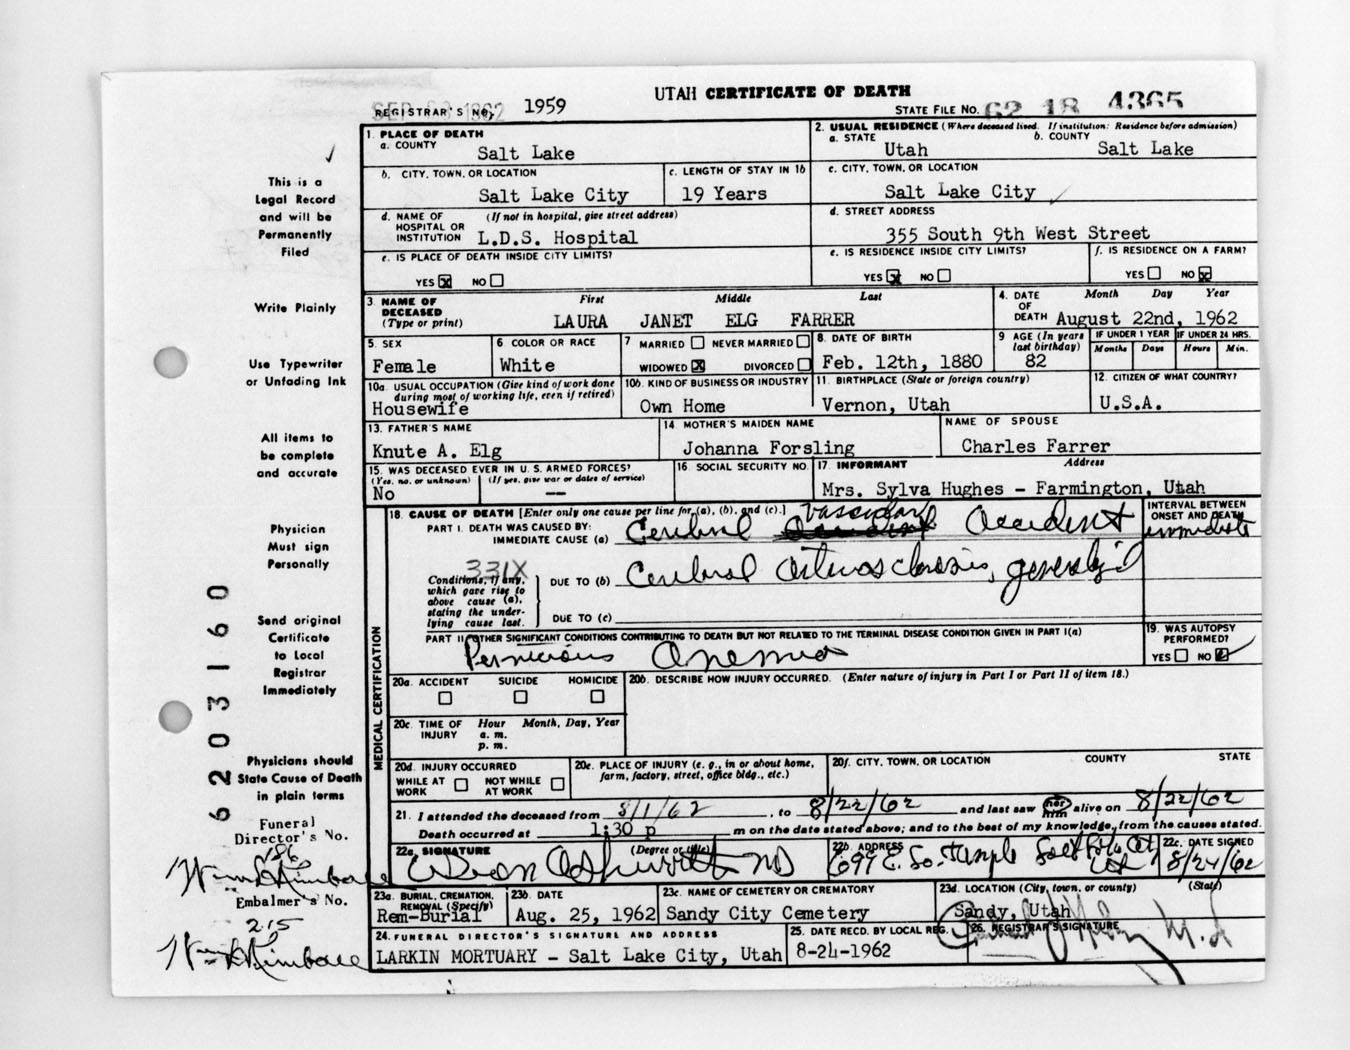 UTAH CERTIFICATE OF DEATH
REGISTRAR'S NO. 1959
STATE FILE NO. 62 18 4365
1. PLACE OF DEATH
a. COUNTY
Salt Lake
2. USUAL RESIDENCE (Where deceased lived. If institution: Residence before admission)
a. STATE b. COUNTY
Utah Salt Lake
b. CITY, TOWN, OR LOCATION
Salt Lake City
c. LENGTH OF STAY IN 1b
19 Years
c. CITY, TOWN, OR LOCATION
Salt Lake City
d. NAME OF HOSPITAL OR INSTITUTION (If not in hospital, give street address)
L.D.S. Hospital
d. STREET ADDRESS
355 South 9th West Street
e. IS PLACE OF DEATH INSIDE CITY LIMITS?
YES X NO
e. IS RESIDENCE INSIDE CITY LIMITS?
YES X NO
f. IS RESIDENCE ON A FARM?
YES NO X
3. NAME OF DECEASED (Type or print)
First Middle Last
LAURA JANET ELG FARRER
4. DATE OF DEATH Month Day Year
August 22nd, 1962
5. SEX
Female
6. COLOR OR RACE
White
7 MARRIED NEVER MARRIED
WIDOWED X DIVORCED
8. DATE OF BIRTH
Feb. 12th, 1880
9 AGE (In years last birthday)
82
IF UNDER 1 YEAR IF UNDER 24 HRS.
Months Days Hours Min.
10a. USUAL OCCUPATION (Give kind of work done during most of working life, even if retired)
Housewife
10b. KIND OF BUSINESS OR INDUSTRY
Own Home
11. BIRTHPLACE (State or foreign country)
Vernon, Utah
12. CITIZEN OF WHAT COUNTRY?
U.S.A.
13. FATHER'S NAME
Knute A. Elg
14 MOTHER'S MAIDEN NAME
Johanna Forsling
NAME OF SPOUSE
Charles Farrer
15. WAS DECEASED EVER IN U.S. ARMED FORCES?
(Yes, no, or unknown) (If yes, give war or dates of service)
No --
16. SOCIAL SECURITY NO.
17. INFORMANT Address
Mrs. Sylva Hughes - Farmington, Utah
18. CAUSE OF DEATH [Enter only one cause per line for (a), (b), and (c).]
PART I. DEATH WAS CAUSED BY:
IMMEDIATE CAUSE (a) Cerebral vascular Accident
INTERVAL BETWEEN ONSET AND DEATH
immediate
331X
Conditions, if any, which gave rise to above cause (a), stating the underlying cause last.
DUE TO (b) Cerebral arteriosclerosis, generalized
DUE TO (c)
PART II OTHER SIGNIFICANT CONDITIONS CONTRIBUTING TO DEATH BUT NOT RELATED TO THE TERMINAL DISEASE CONDITION GIVEN IN PART I(a)
Pernicious Anemia
19. WAS AUTOPSY PERFORMED?
YES NO
MEDICAL CERTIFICATION
20a. ACCIDENT SUICIDE HOMICIDE
20b. DESCRIBE HOW INJURY OCCURRED. (Enter nature of injury in Part I or Part II of item 18.)
20c. TIME OF INJURY Hour Month, Day, Year
a. m.
p. m.
20d. INJURY OCCURRED
WHILE AT WORK NOT WHILE AT WORK
20e. PLACE OF INJURY (e. g., in or about home, farm, factory, street, office bldg., etc.)
20f. CITY, TOWN, OR LOCATION COUNTY STATE
21. I attended the deceased from 8/1/62, to 8/22/62 and last saw her him alive on 8/22/62
Death occurred at 1:30 p m on the date stated above; and to the best of my knowledge, from the causes stated.
22a. SIGNATURE (Degree or title)
MD
22b. ADDRESS
699 E. So. Temple Salt Lake City
22c. DATE SIGNED
8/24/62
23a. BURIAL, CREMATION, REMOVAL (Specify)
Rem-Burial
23b. DATE
Aug. 25, 1962
23c. NAME OF CEMETERY OR CREMATORY
Sandy City Cemetery
23d. LOCATION (City, town, or county) (State)
Sandy, Utah
24. FUNERAL DIRECTOR'S SIGNATURE AND ADDRESS
LARKIN MORTUARY - Salt Lake City, Utah
25. DATE RECD. BY LOCAL REG.
8-24-1962
26. REGISTRAR'S SIGNATURE
This is a
Legal Record
and will be
Permanently
Filed
Write Plainly
Use Typewriter
or Unfading Ink
All items to
be complete
and accurate
Physician
Must sign
Personally
Send original
Certificate
to Local
Registrar
Immediately
Physicians should
State Cause of Death
in plain terms
Funeral
Director's No.
186
Wm Kimball
Embalmer's No.
215
Wm Kimball
6203160